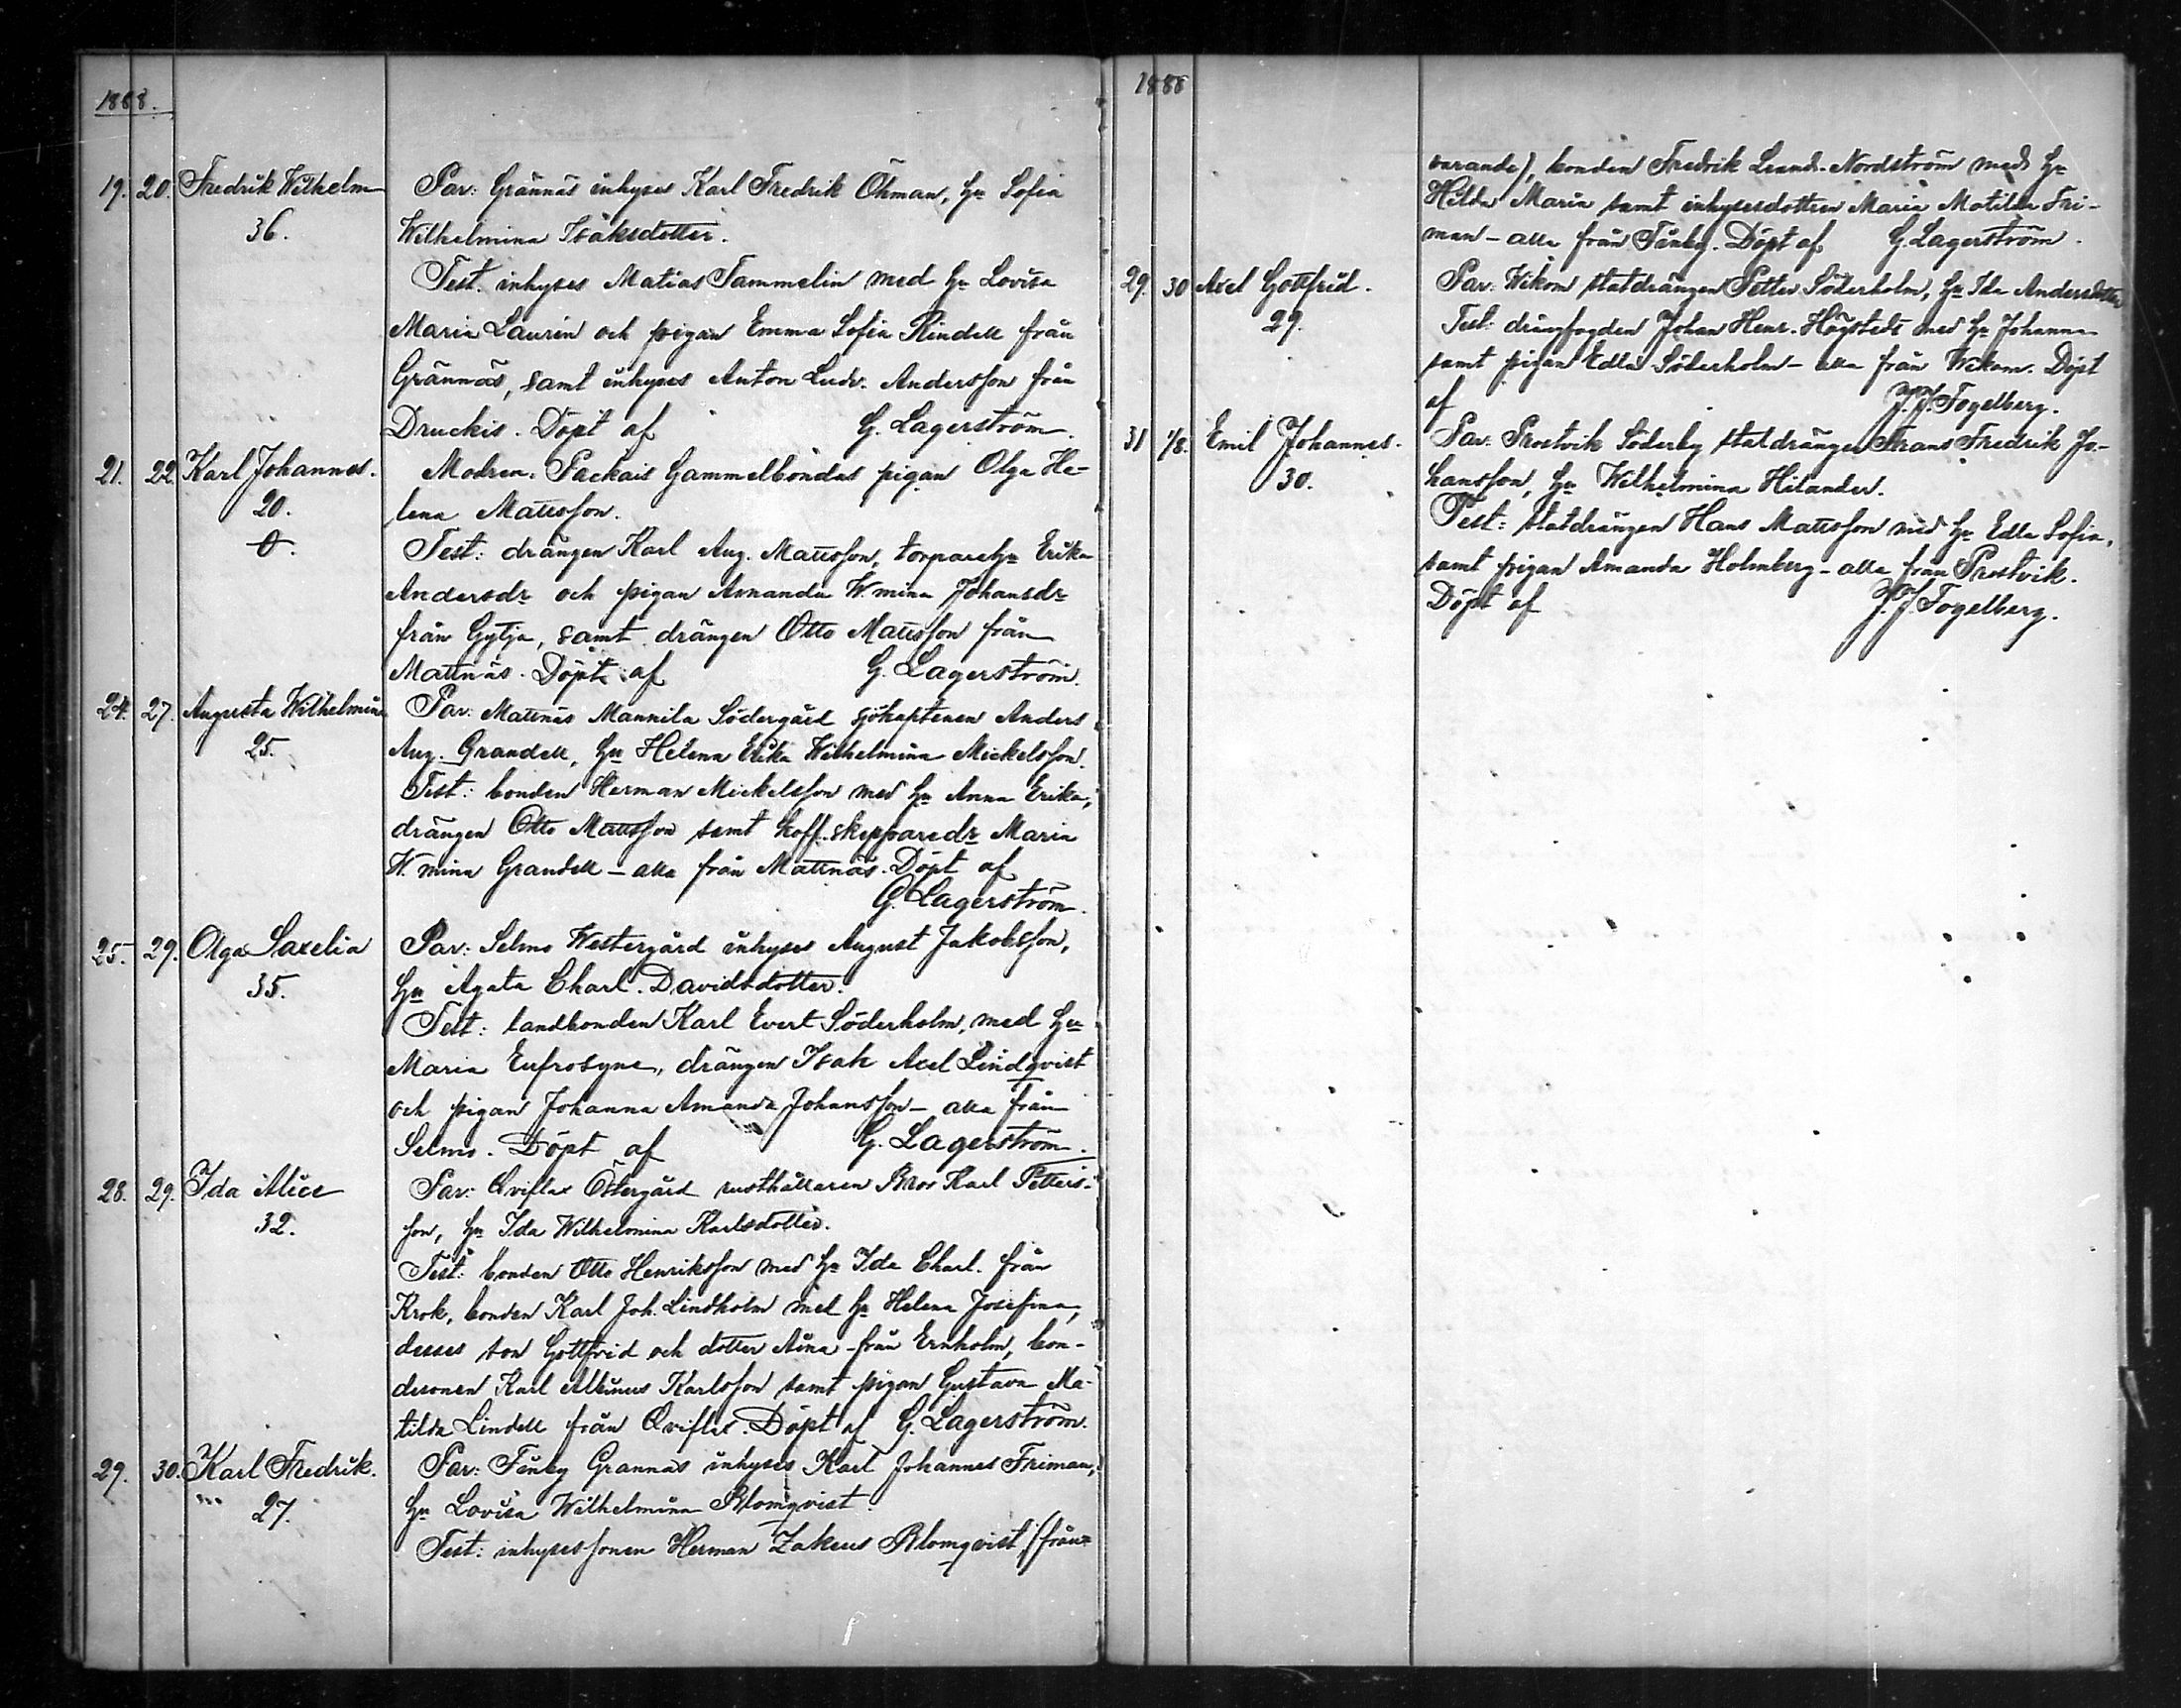 1888.
19. 20. Fredrik Wilhelm Par: Grännäs inhyses Karl Fredrik Öhman, Hu Sofia
36. Wilhelmina Isaksdotter.
Test. inhyses Matias Tammelin med Hu Lovisa
Maria Laurin och pigan Emma Sofia Rindell från
Grännäs, samt inhyses Anton Ludv. Andersson från
Druckis. Döpt af G. Lagerström.
21. 22. Karl Johannes. Modren. Packais Gammelbondas pigan Olga He-
20. lena Mattsson.
Test: drängen Karl Aug. Mattsson, torpareHu Erika
Andersdr och pigan Amanda W.mina Johansdr
från Gytja, samt drängen Otto Mattsson från
Mattnäs. Döpt af G. Lagerström.
24. 27. Augusta Wilhelmina Par: Mattnäs Mannila Södergård sjökaptenen Anders
25. Aug. Grandell, Hu Helena Erika Wilhelmina Mickelsson.
Test: bonden Herman Mickelsson med Hu Anna Erika,
drängen Otto Mattsson samt koff. skepparedr Maria
W.mina Grandell – alla från Mattnäs. Döpt af
G. Lagerström.
25. 29. Olga Saxelia Par: Selmo Westergård inhyses August Jakobsson,
35. Hu Agata Charl. Davidsdotter.
Test: landbonden Karl Evert Söderholm, med Hu
Maria Eufrosyne, drängen Isak Axel Lindqvist
och pigan Johanna Amanda Johansson – alla från
Selmo. Döpt af G. Lagerström.
28. 29. Ida Alice Par: Qviflax Östergård rusthållaren Bror Karl Petters-
32. son, Hu Ida Wilhelmina Karlsdotter.
Test: bonden Otto Henriksson med Hu Ida Charl. från
Krok, bonden Karl Joh. Lindholm med Hu Helena Josefina,
desses son Gottfrid och dotter Aina – från Ernholm, bon-
desonen Karl Albinus Karlsson samt pigan Gustava Ma-
tilda Lindell från Qviflax. Döpt af G. Lagerström.
29. 30. Karl Fredrik. Par: Finby Grannas inhyses Karl Johannes Friman,
27. Hu Lovisa Wilhelmina Blomqvist.
Test: inhysessonen Herman Zakeus Blomqvist (från-
1888
varande), bonden Fredrik Leand. Nordström med Hu
Hilda Maria samt inhysesdottren Maria Matilda Fri-
man – alla från Finby. Döpt af G. Lagerström.
29. 30 Axel Gottfrid. Par: Wikom statdrängen Petter Söderholm, Hu Ida Andersdotter
29. Test: drängfogden Johan Henr. Högstedt med Hu Johanna
samt pigan Edla Söderholm – alla från Wikom. Döpt
af J. J. Fogelberg.
31 1/8. Emil Johannes. Par: Prostvik Söderby statdrängen Frans Fredrik Jo-
30. hansson, Hu Wilhelmina Hilander.
Test: statdrängen Hans Mattsson med Hu Edla Sofia,
samt pigan Amanda Holmberg – alla från Prostvik.
Döpt af J. J. Fogelberg.